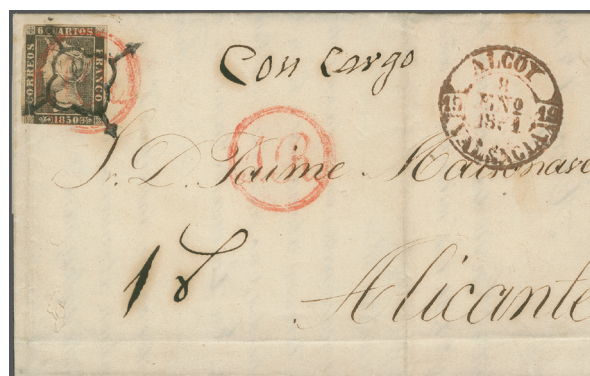 6 CUARTOS
CORREOS
FRANCO
1850
Con Cargo
ALCOY
8
ENO
1851
19 19
VALENCIA
16
Sr. D. Jaime Maisonave
Alicante